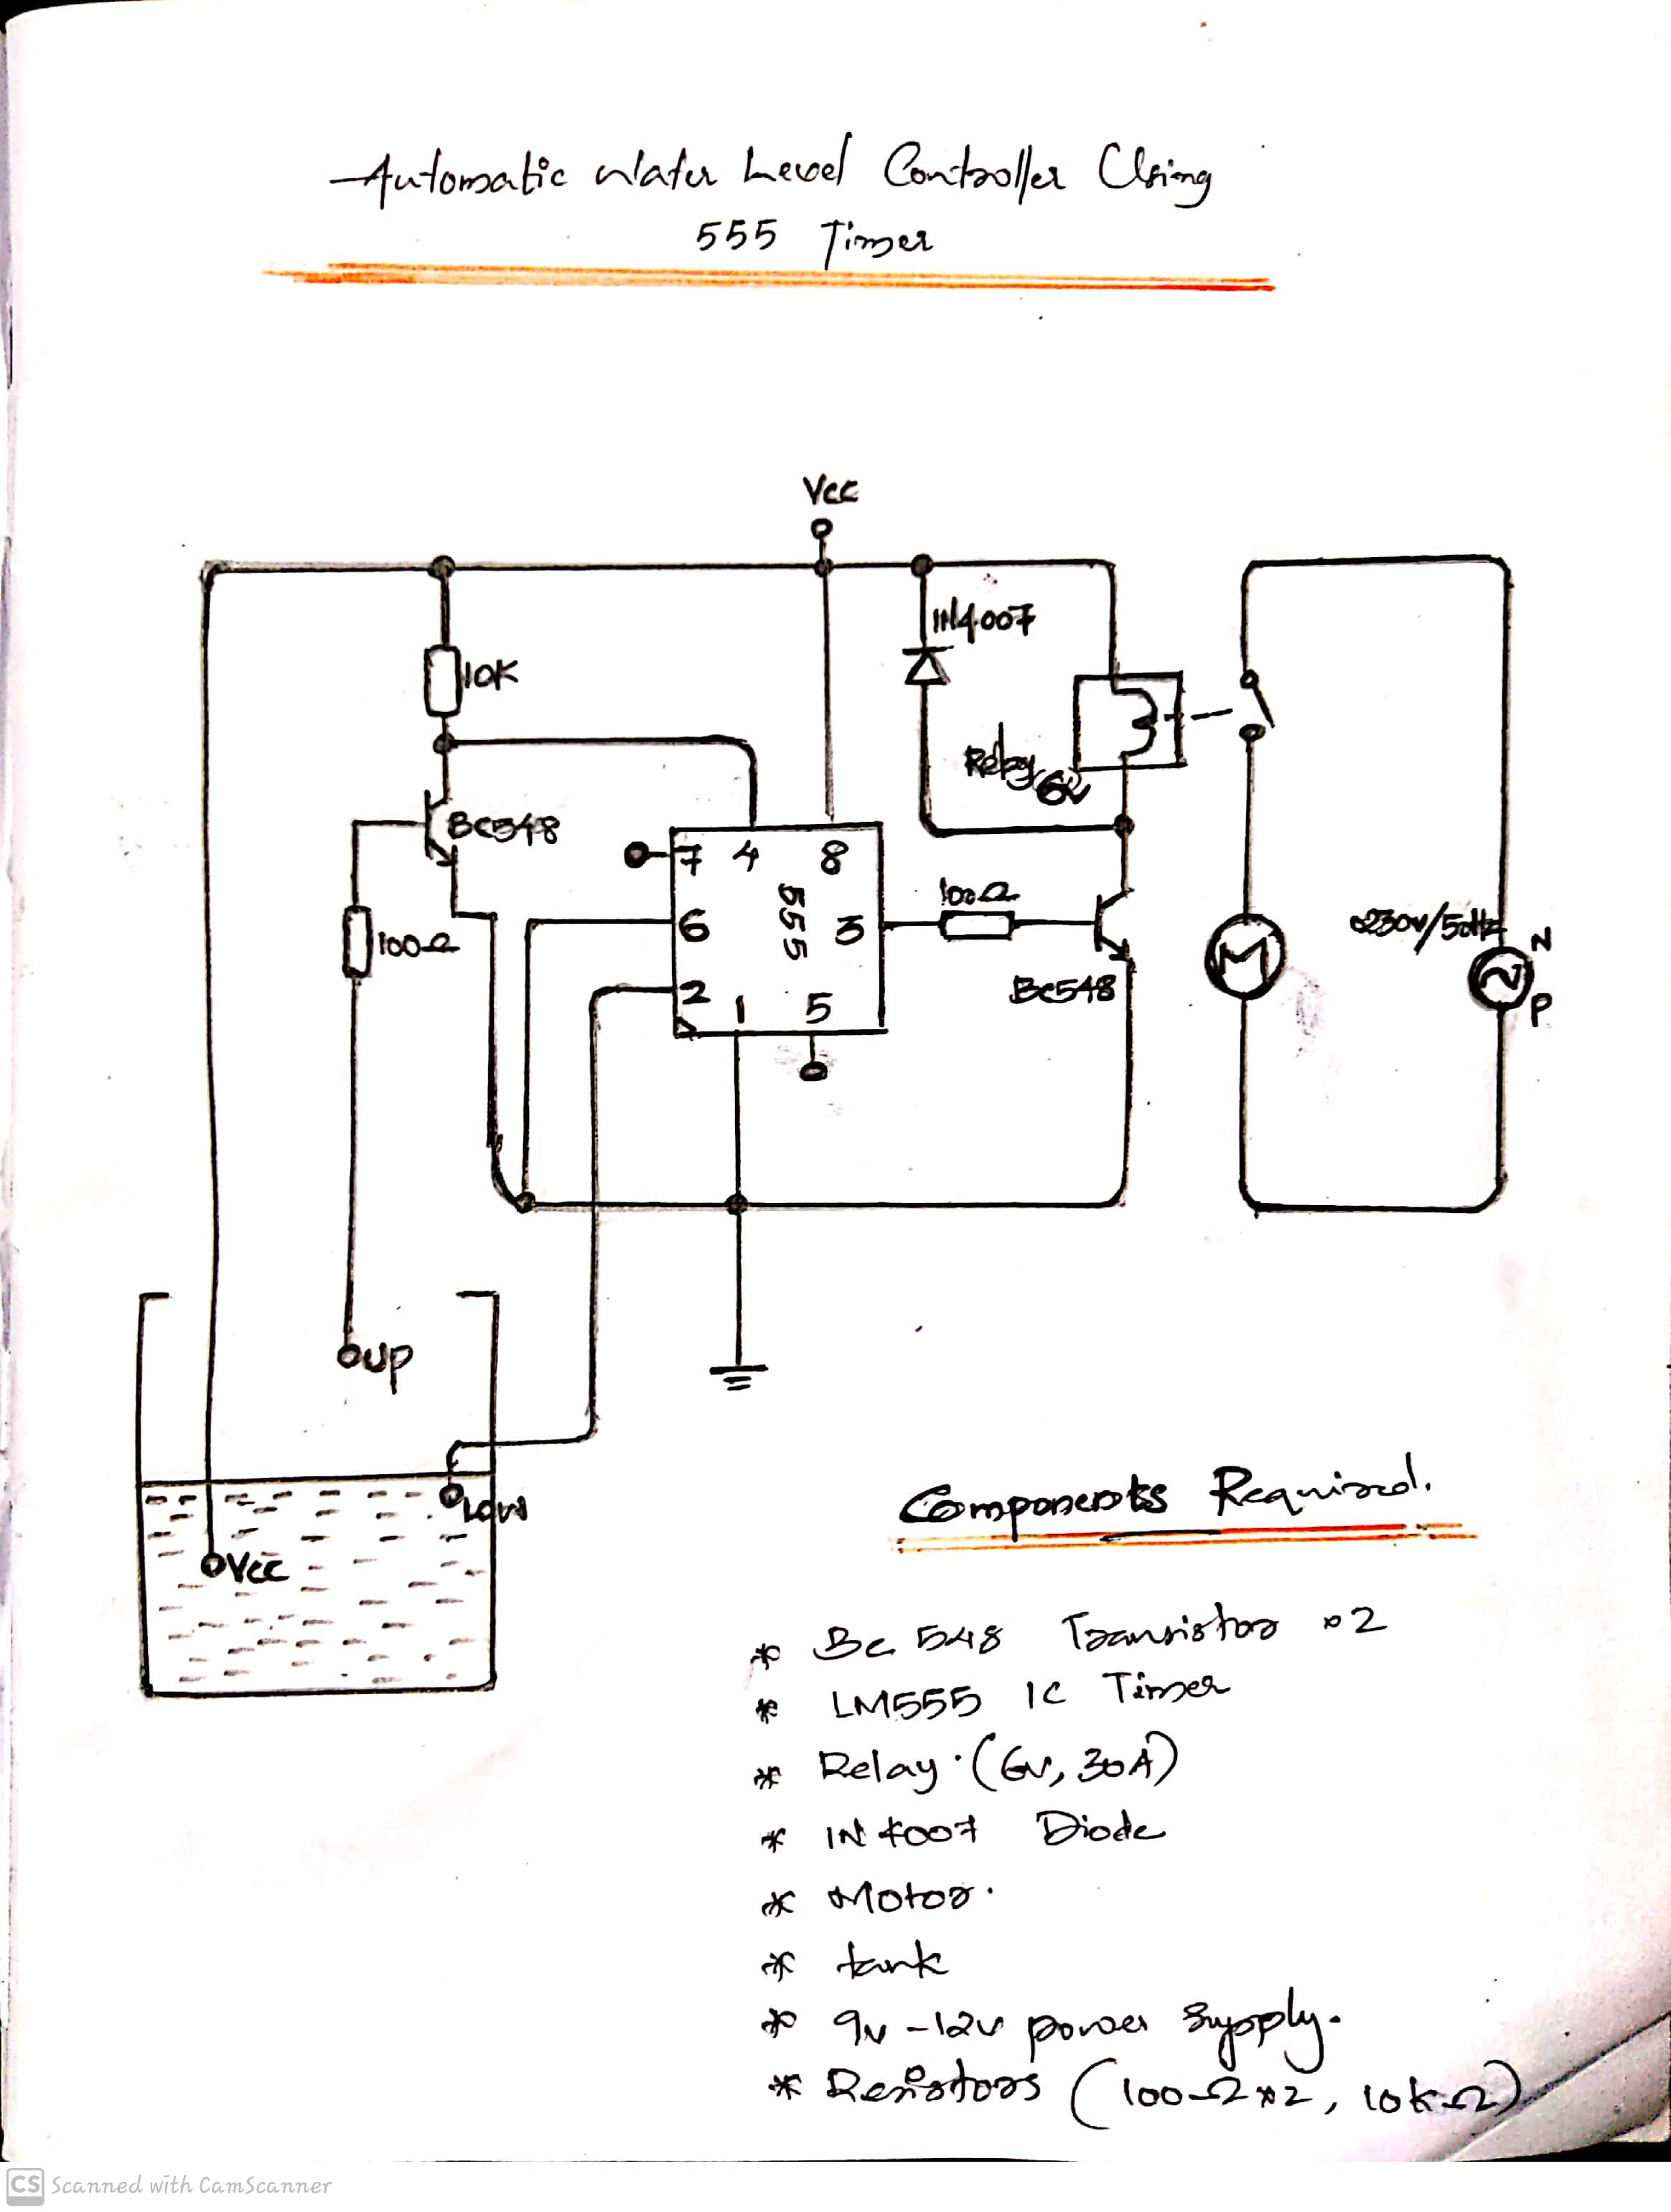 Automatic Water Level Controller Using
555 Timer
Vcc
1N4007
10K
Relay
6v
BC548
7 4 8
100Ω
555
6
3
100Ω
230v/50Hz
N
BC548
2
1 5
P
UP
Low
Vcc
Components Required.
* BC 548 Transistor x2
* LM555 IC Timer
* Relay (6v, 30A)
* IN 4007 Diode
* Motor.
* tank
* 9v-12v power supply.
* Resistors (100Ω x2, 10kΩ)
M
CS Scanned with CamScanner